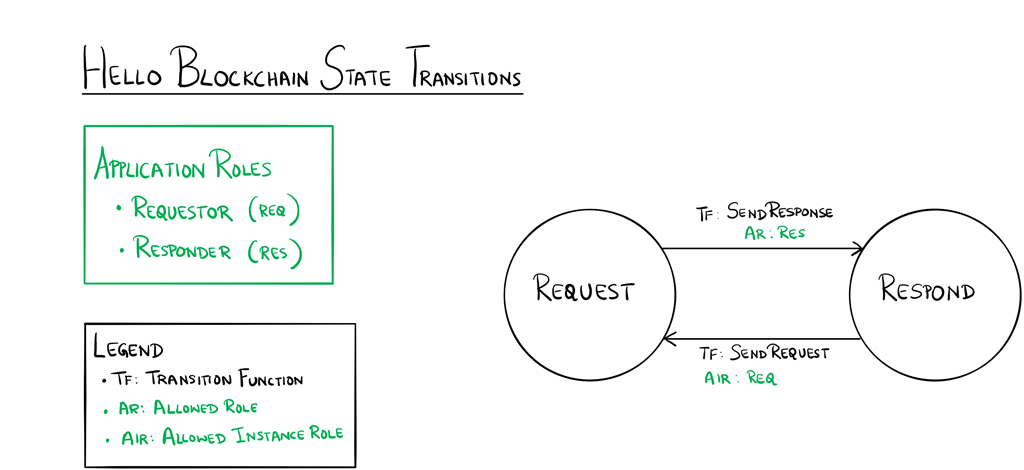 HELLO BLOCKCHAIN STATE TRANSITIONS
APPLICATION ROLES
• REQUESTOR (REQ)
• RESPONDER (RES)
LEGEND
• TF: TRANSITION FUNCTION
• AR: ALLOWED ROLE
• AIR: ALLOWED INSTANCE ROLE
TF: SENDRESPONSE
AR: RES
REQUEST
RESPOND
TF: SENDREQUEST
AIR: REQ